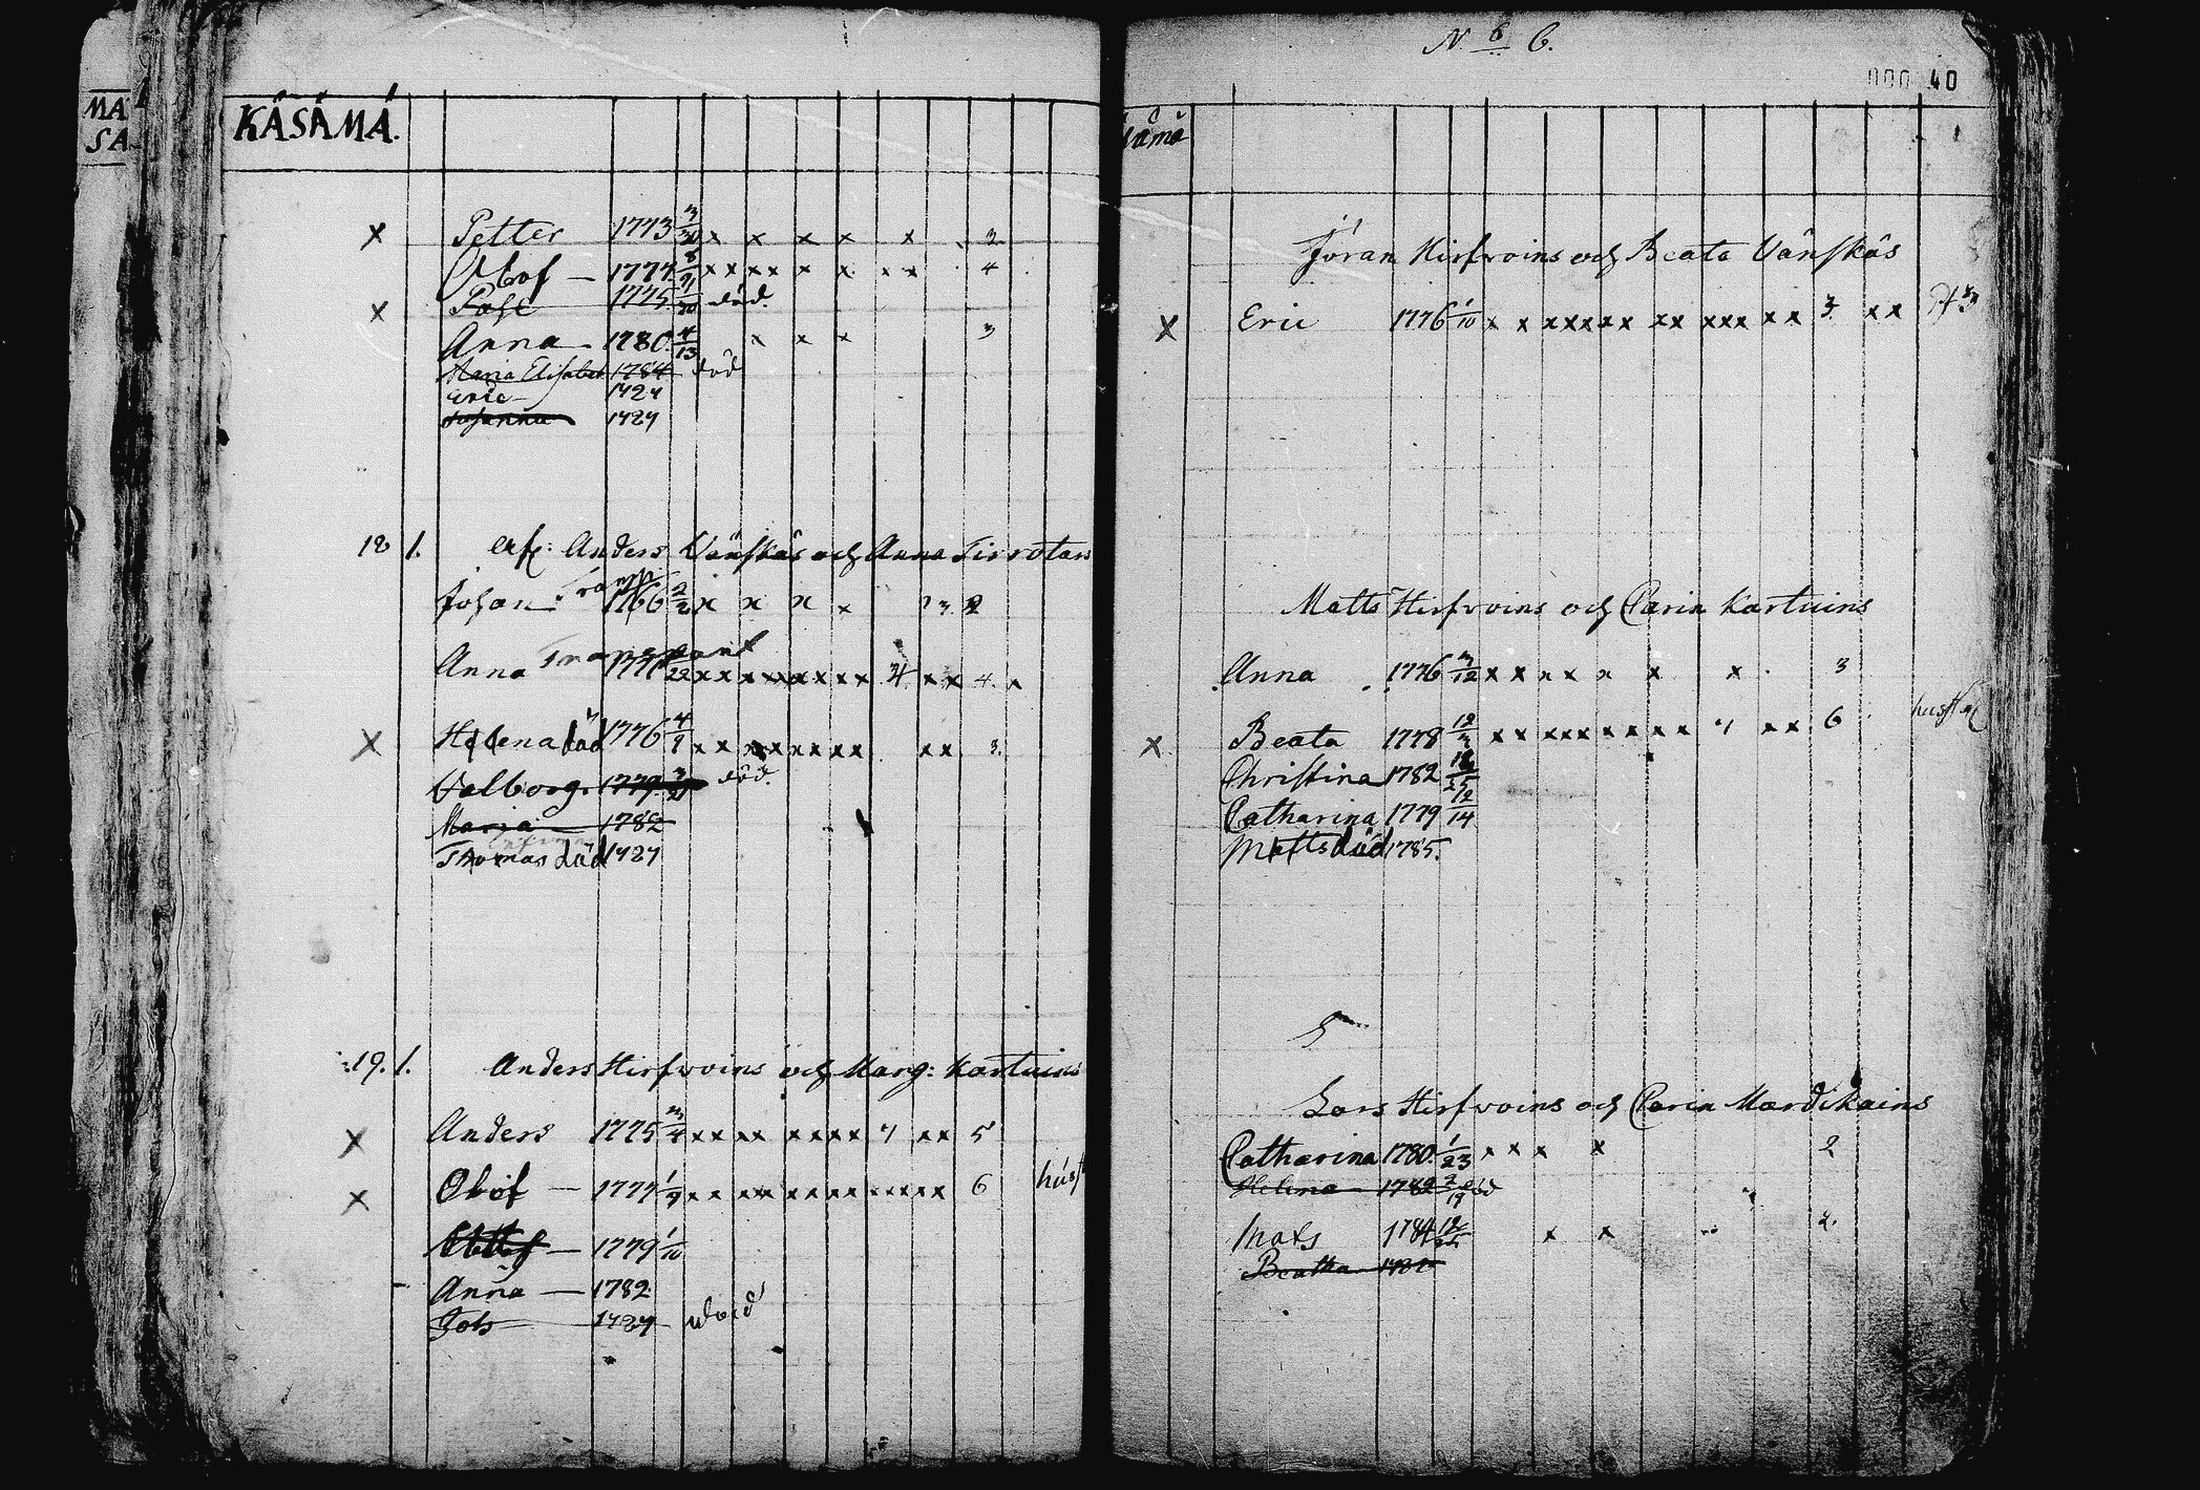 MA
SA
KÄSÄMÄ.
x Petter 1773 3/30 x x x x x 3
Olof — 1774 8/9 x x x x x x x x 4
x 1775 11/30 död.
Anna — 1780 4/13 x x x 3
Maria Elisabet 1784 död
Eric — 1787
Johanna 1787
18 1. Anders Vänskäs och Anna Tirrotars
Johan Transp. 1766 2/2 x x x x 3 2
Anna Transport 1771 /22 x x x x x x x x x 4 x x 4 x
x Helena död 1776 4/9 x x x x x x x x x x 3.
Valborg 1779 3/21 död.
Maria — 1782
Thomas död 1787
19. 1. Anders Hirfvoins och Marg: Kartuins
x Anders 1775 3/4 x x x x x x x x 4 x x 5
x Olof — 1777 1/9 x x x x x x x x x x x x x 6 hust
— 1779 1/10
Anna — 1782
1787 död
N. 8 C.
000 40
Jöran Hirfvoins och Beata Vänskäs
x Eric 1776 1/10 x x x x x x x x x x x x x x 3. x x
Matts Hirfvoins och Carin Kartuins
Anna 1776 3/12 x x x x x x x 3
x Beata 1778 12/3 x x x x x x x x x x 4 x x 6
Christina 1782 12/25
Catharina 1779 12/14
Matts död 1785.
Lars Hirfvoins och Carin Mardikains
Catharina 1780. 1/23 x x x x 2
Helena 1782 2/19 död
Mats 1784 12/25 x x 2.
Beatha